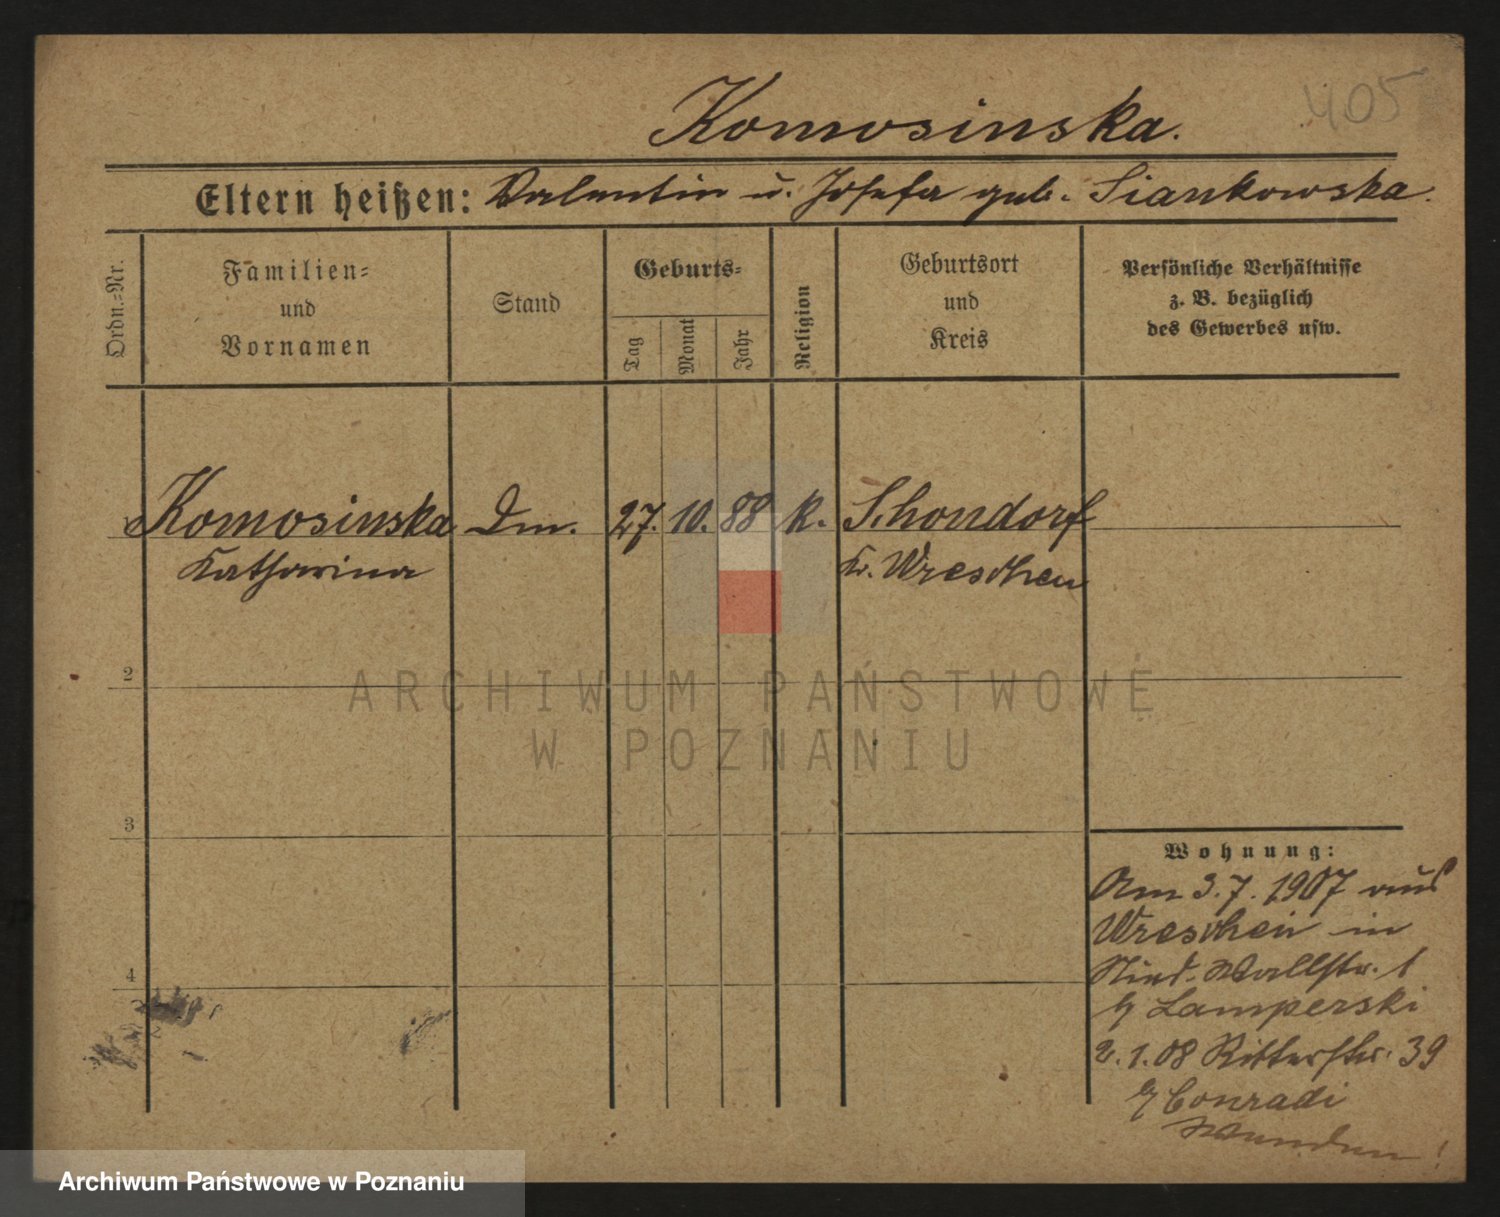 405
Komosinska.
Eltern heißen: Valentin u. Josefa geb. Siankowska.
Ordn.-Nr.
Familien-
und
Vornamen
Stand
Geburts-
Tag
Monat
Jahr
Religion
Geburtsort
und
Kreis
Persönliche Verhältnisse
z. B. bezüglich
des Gewerbes usw.
Komosinska Dm. 27. 10. 88 k. Schondorf
Katharina Kr. Wreschen
2
3
4
Wohnung:
Am 3.7.1907 aus
Wreschen in
Nied. Wallstr. 1
Lamperski
2.1.08 Ritterstr. 39
Conradi
ARCHIWUM PAŃSTWOWE
W POZNANIU
Archiwum Państwowe w Poznaniu